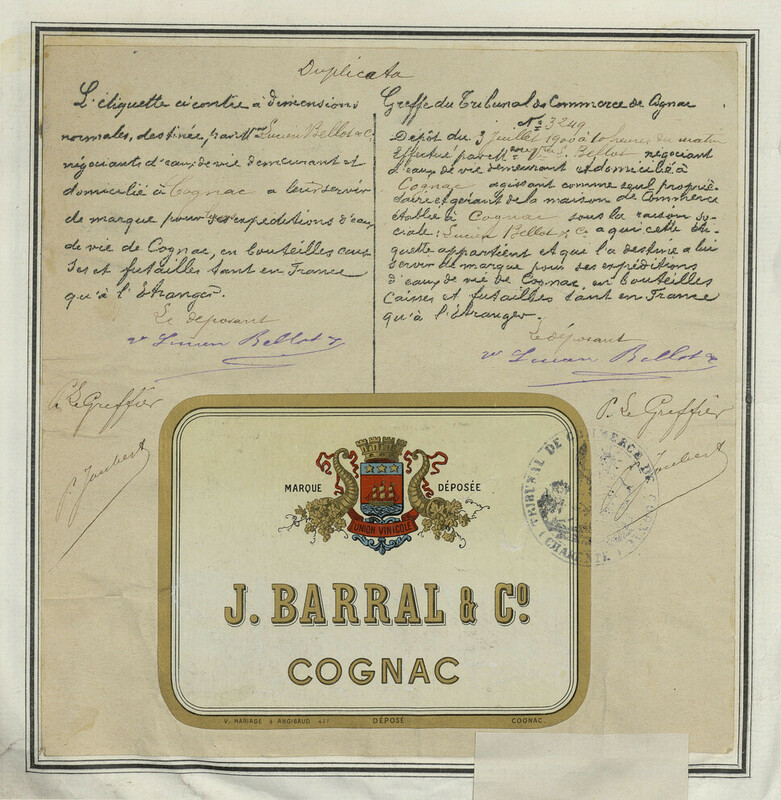 Duplicata
L'étiquette ci contre à dimensions
normales, destinée, par Mrs Lucien Bellot & Co
négociants d'eaux de vie demeurant et
domicilié à Cognac a leur servir
de marque pour ses expéditions d'eaux
de vie de Cognac, en bouteilles cais-
ses et futailles tant en France
qu'à l'Etranger.
Le déposant
Vr Lucien Bellot &
P. Le Greffier
P. Joubert
Greffe du Tribunal de Commerce de Cognac
No 3249
Dépôt du 3 juillet 1900 à 10 heures du matin
Effectué par Mr Bellot négociant
d'eaux de vie demeurant et domicilié à
Cognac agissant comme seul proprié-
taire et gérant de la maison de Commerce
établie à Cognac sous la raison so-
ciale: Lucien Bellot & Co a qui cette éti-
quette appartient et qui l'a destinée a lui
servir de marque pour ses expéditions
d'eaux de vie de Cognac, en bouteilles
Caisses et futailles tant en France
qu'à l'Etranger.
Le déposant
Vr Lucien Bellot &
P. Le Greffier
Joubert
TRIBUNAL DE COMMERCE DE
(CHARENTE)
MARQUE DÉPOSÉE
UNION VINICOLE
J. BARRAL & Co.
COGNAC
V. MARIAGE & ANGIBAUD 427 DÉPOSÉ COGNAC